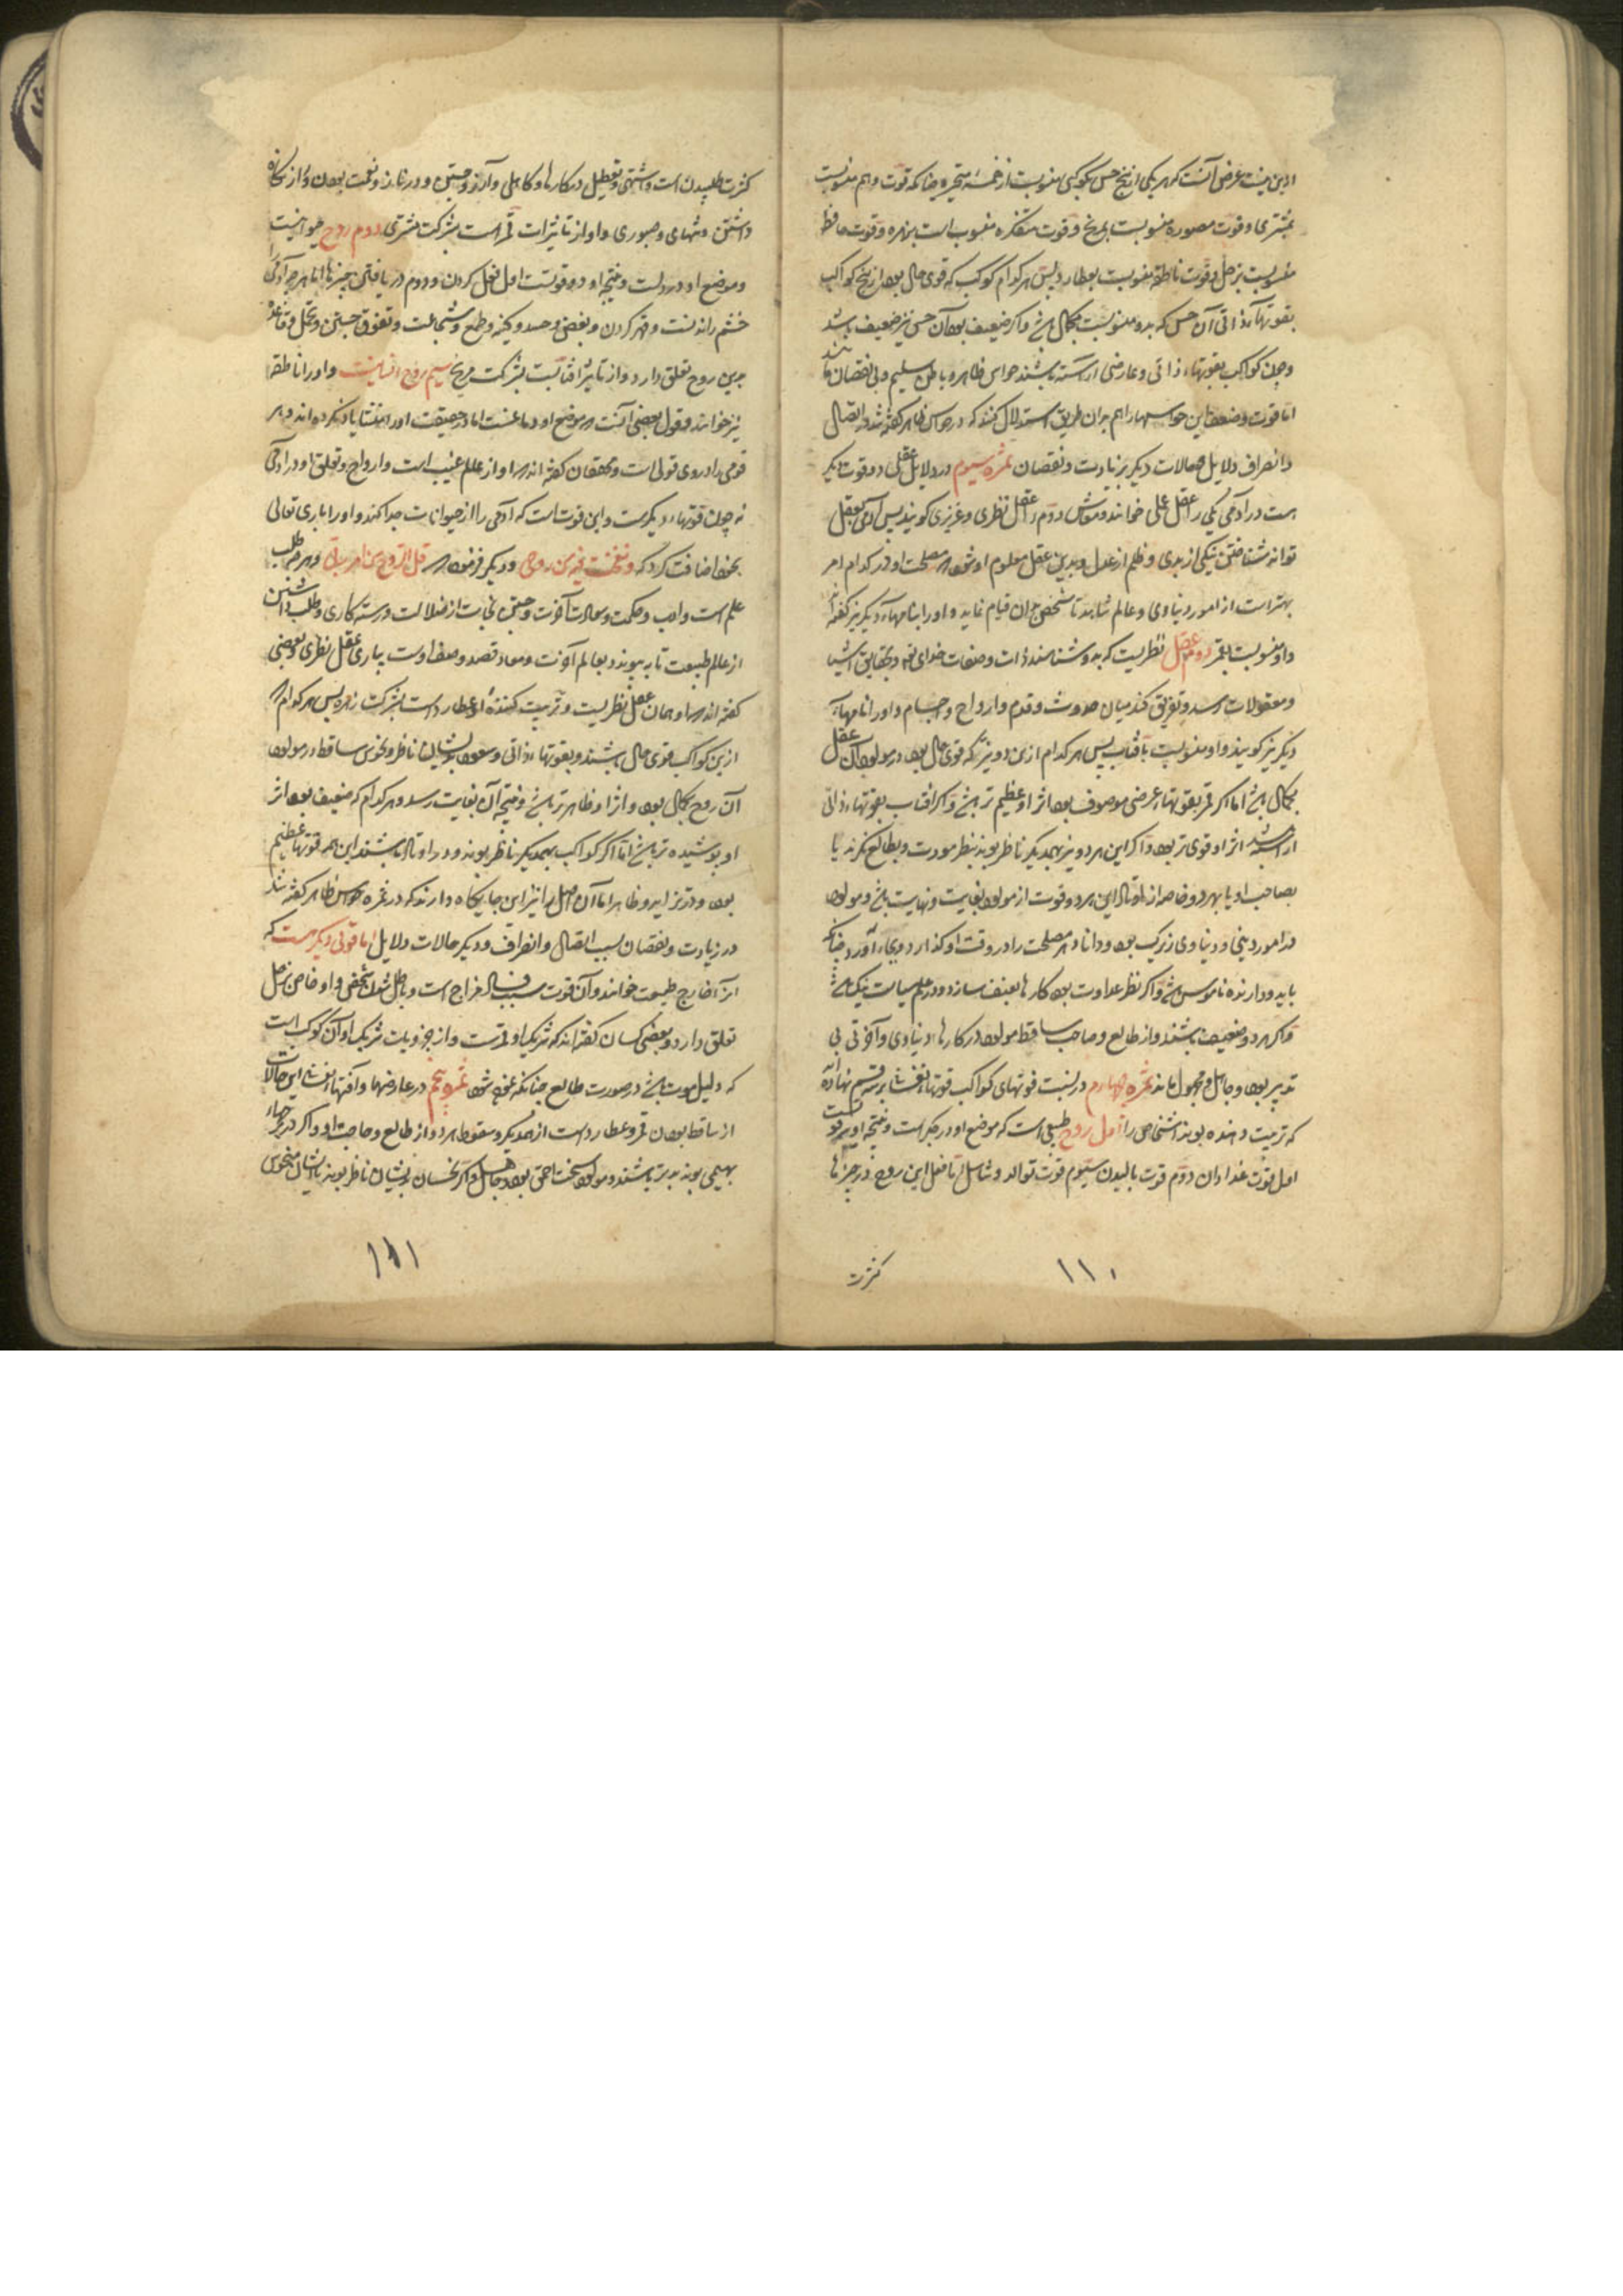 ازین میشت غرض آنست که هر یکی از پنج حس بکوکبی منسوبست از خمسهٔ متحیره چنانکه قوت واهم منسوبست
بمشتری و قوت مصوره منسوبست بمریخ و قوت متفکره منسوب است بزهره و قوت حافظه
منسوبست بزحل و قوت ناطقه منسوبست بعطارد پس هر کدام کوکب که قوی حال بود از پنج کواکب
بقوتهاء ذاتی آن حس که بدو منسوبست بکمال باشد و اکر ضعیف بود آن حس نیز ضعیف باشد
و چون کواکب بقوتهاء ذاتی و عارضی آراسته باشند حواس ظاهر و باطن سلیم و بی نقصان باشد
اما قوت وضعف این حواسها را هم بران طریق استدلال کنند که در حواس ظاهر کفته شد و اتصال
و انصراف دلایل و حالات دیکر بزیادت و نقصان ثمره سیوم در دلایل عقلی دو قوت دیکر
هست در آدمی یکی را عقل عملی خوانند دوم را عقل نظری و غریزی کویند پس آدمی بعقل
تواند شناختن نیکی از بدی و ظلم از عدل و بدین عقل معلوم او شود که مصلحت او در کدام امر
بهتر است از امور دنیاوی و عالم شاهد تا شخص بران قیام نماید و او را بنامهاء دیکر نیز کفته اند
و او منسوبست بقمر دوم عقل نظریست که بدو شناسند ذات و صفات خدای تعالی و بحقایق اشیا
و معقولات رسد و تفریق کند میان حدوث و قدم و ارواح و اجسام و او را نامهاء
دیکر نیز کویند و او منسوبست بآفتاب پس هر کدام ازین دو نیر که قوی حال بود در مولود آن عقل
بکمال باشد اما اکر قمر بقوتهاء عرضی موصوف بود اثر او عظیم تر باشد و اکر آفتاب بقوتهاء ذاتی
آراسته باشد اثر او قوی تر بود و اکر این هر دو نیر بهمدیکر ناظر بوند بنظر مودت و بطالع نکرند یا
بصاحب او یا بهر دو خاصه از اوتاد این هر دو قوت از مولود بغایت و نهایت باشد و مولود
در امور دینی و دنیاوی زیرک بود و دانا و هر مصلحت را در وقت او کذارد و بجاء آورد چنانکه
باید و دارنده ناموس باشد و اکر نظر عداوت بود کارها بعنف سازد و در علم سیاست نیک باشد
و اکر هر دو ضعیف باشند و از طالع و صاحب ساقط مولود در کارهاء دنیاوی و آخرتی بی
تدبیر بود و جاهل و مجهول ماند ثمره چهارم در نسبت قوتهای کواکب قوتهاء نفس بر سه قسم نهاده اند
که تربیت دهنده بوند اشخاص را اول روح طبیعی است که موضع او در جکر است و نتیجه او سه قوتست
اول قوت غذا دادن دوم قوت بالیدن سیوم قوت توالد و تناسل اما فعل این روح در چیزها
کثرت
۱۱۰
کثرت طلبیدن است و اشتهی و تعطیل در کارها و کاهلی و آرزو جستن و در ناز و نعمت بودن و از کناه
داشتن و تنهای و صبوری و او از تاثیرات قمر است بشرکت مشتری دوم روح حیوانیست
و موضع او در دلست و نتیجه او دو قوتست اول فعل کردن و دوم دریافتن چیزها اما هر چه آدمی را
خشم راندنست و قهر کردن و بغض و حسد و کینه و طمع و شجاعت و تفوق جستن و تحمل و تفاخر
بدین روح تعلق دارد و از تاثیر آفتابست بشرکت مریخ سیم روح انسانیست و او را ناطقه
نیز خوانند و قول بعضی آنست که موضع او دماغست اما در حقیقت او را منشأ یاد نکرده اند و بر
قومی را دروی قولی است و محققان کفته اند که او از عالم غیب است و ارواح و تعلق او در آدمی
نه چون قوتهاء دیکرست و این قوت است که آدمی را از حیوانات جدا کند و او را باری تعالی
بخود اضافت کرد که ونفخت فیه من روحی و دیکر فرموده که قل الروح من امر ربی و هر چه طلب
علم است و ادب و حکمت و سعادت آخرت و جستن نجات از ضلالت و رسته کاری و طلب داشتن
از عالم طبیعت تا بپیوند بعالم آخرت و معاد قصد و صف اوست بیاری عقل نظری و بعضی
کفته اند که او همان عقل نظریست و تربیت کننده او عطارد است بشرکت زهره پس هر کدام که
ازین کواکب قوی حال باشند و بقوتهاء ذاتی و سعود بدیشان ناظر و نحوس ساقط در مولود
آن روح بکمال بود و اثر او ظاهر تر باشد و نتیجه آن بغایت رسد و هر کدام که ضعیف بود اثر
او پوشیده تر باشد اما اکر کواکب بهمدیکر ناظر بوند و در اوتاد باشند این همه قوتها عظیم
بود و در تزاید و ظاهر اما آن اصل را نیز این جایکاه دارند که در ثمره حواس ظاهر کفته شد
در زیادت و نقصان بسبب اتصال و انصراف و دیکر حالات دلایل اما قوتی دیکر هست که
از آخارج طبیعت خوانند و آن قوت سبب فساد مزاج است و باطل شدن شخص و او خاص بزحل
تعلق دارد و بعضی کسان کفته اند که شریک او قمرست و از جزویات شریک او آن کوکب است
که دلیل موت باشد در صورت طالع چنانکه نموده شود ثمره پنجم در عارضها و آفتهاء نفس این حالات
از ساقط بودن قمر و عطارد است از همدیکر و سقوط هر دو از طالع و صاحب او و اکر در برجهاء
بهیمی بوند بدتر باشند و مولود سخت احمق بود و جاهل و اکر نحسان بدیشان ناظر بوند یا ایشان منحوس
۱۱۱